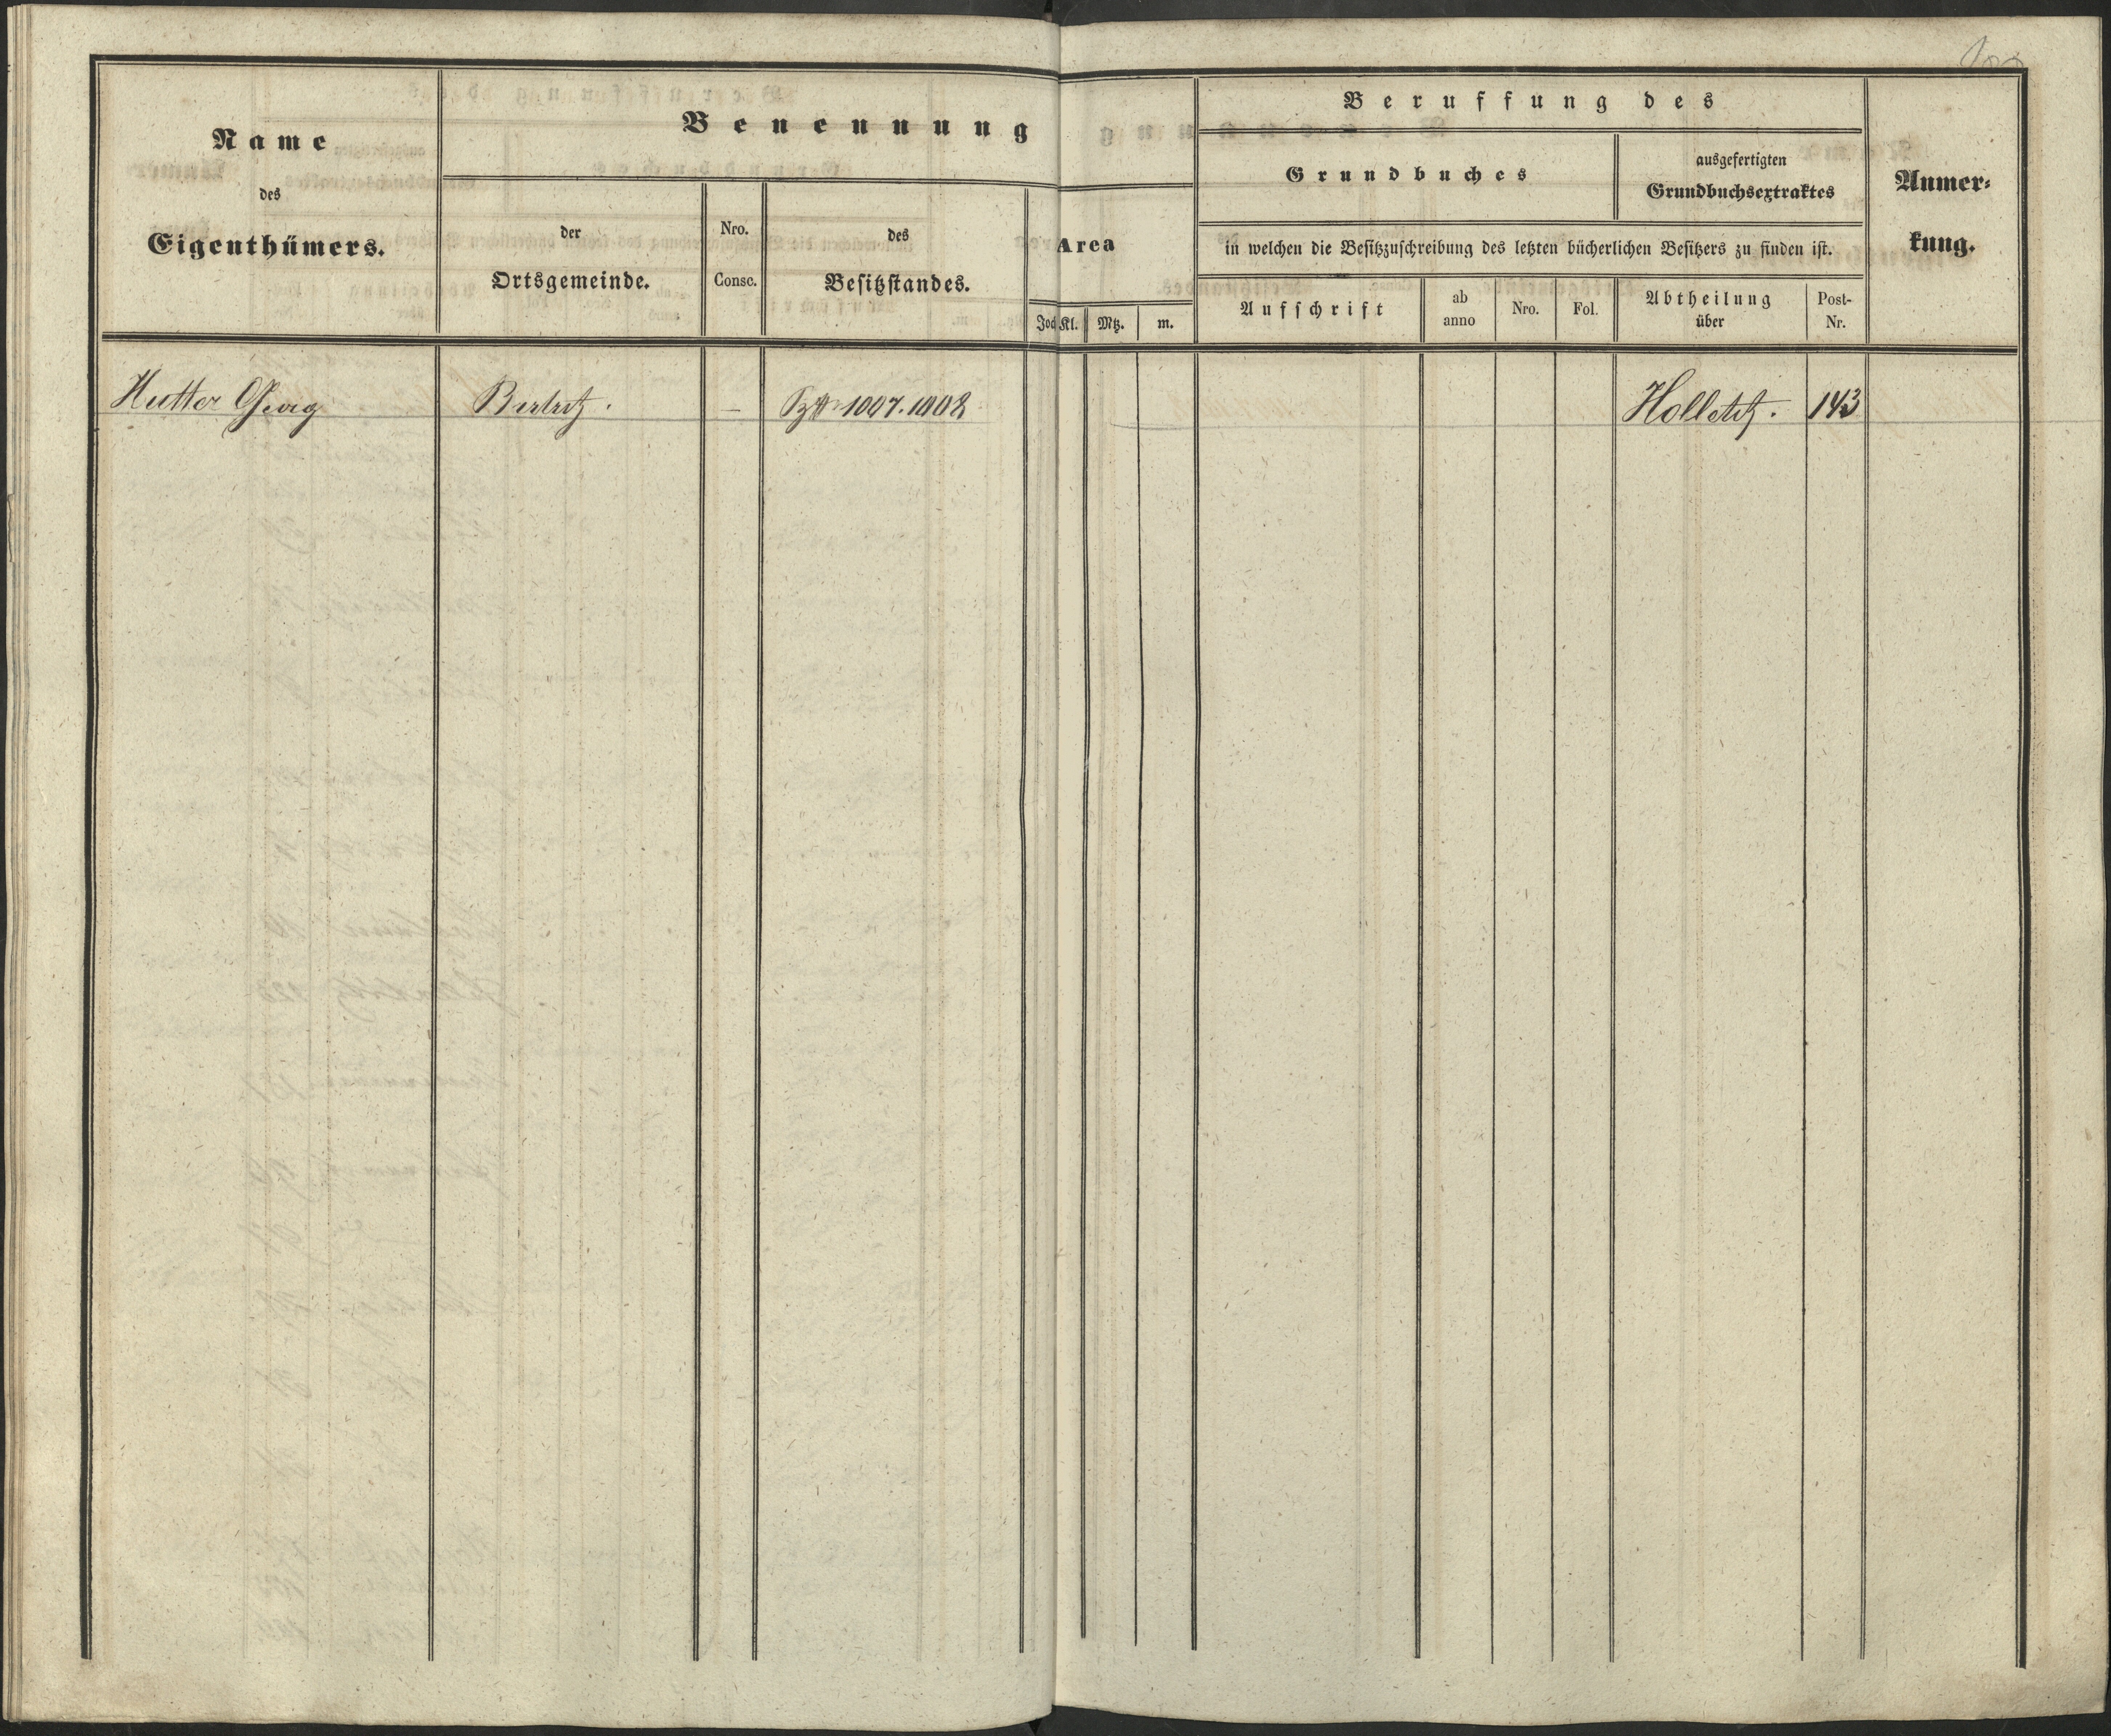 Name
des
Eigenthümers.
Benennung
der
Ortsgemeinde.
Nro.
Consc.
des
Besitzstandes.
Area
Joch Kl. Mtz. m.
Beruffung des
Grundbuches
ausgefertigten
Grundbuchsextraktes
in welchen die Besitzzuschreibung des letzten bücherlichen Besitzers zu finden ist.
Aufschrift
ab
anno
Nro.
Fol.
Abtheilung
über
Post-
Nr.
Anmer-
kung.
Hutter Georg – 1007. 1008 Holletitz. 143